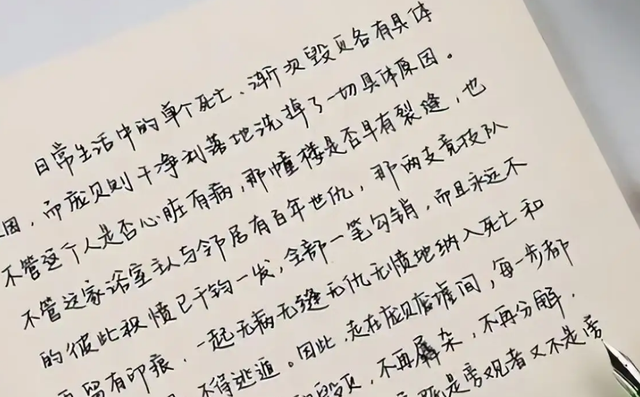 日常生活中的单个死亡、渐次毁灭各有具体
因，而庞贝则干净利落地洗掉了一切具体原因。
不管这个人是否心脏有病，那幢楼是否早有裂缝，也
不管这家浴室主人与邻居有百年世仇，那两支竞技队
的彼此积愤已千钧一发，全部一笔勾销，而且永远不
留有印痕，一起无病无缝无仇无愤地纳入死亡和
不得逃遁。因此，走在庞贝废墟间，每一步都
毁灭，不再羼杂，不再分解，
是旁观者又不是旁